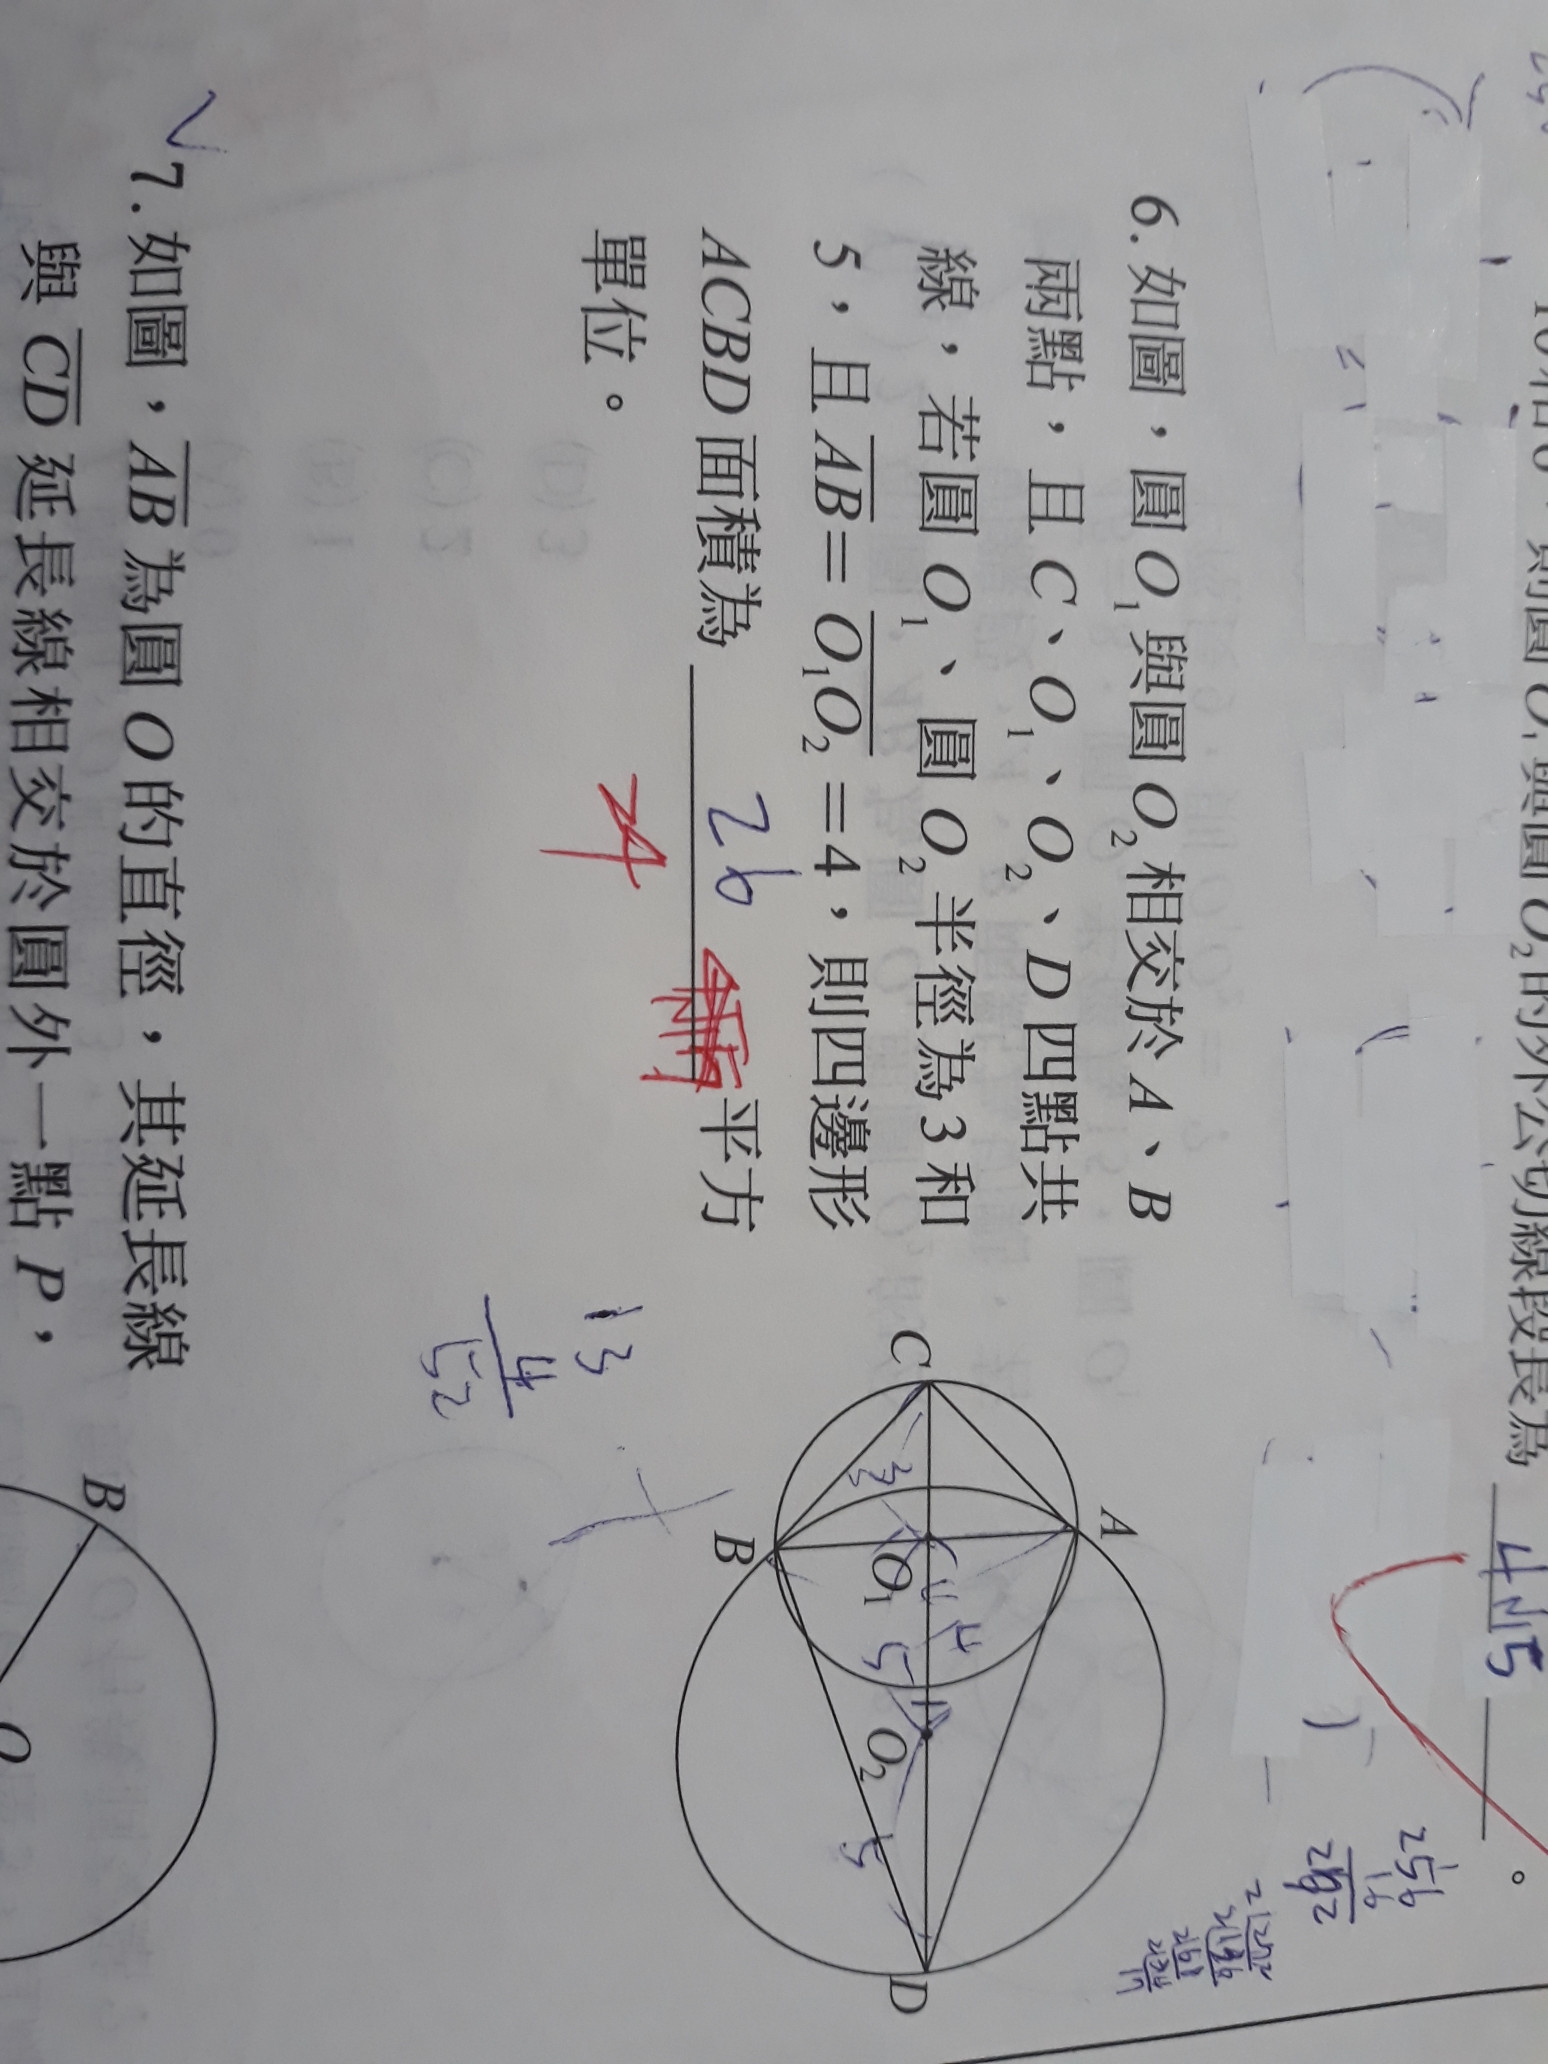 10和6，則圓O₁與圓O₂的外公切線段長為 4√15 。
6.如圖，圓O₁與圓O₂相交於A、B
兩點，且C、O₁、O₂、D四點共
線，若圓O₁、圓O₂半徑為3和
5，且AB=O₁O₂=4，則四邊形
ACBD面積為 26 平方
24
單位。
C
A
B
O₁
O₂
D
3
4
5
5
13
4
52
256
16
✓7.如圖，AB為圓O的直徑，其延長線
與CD延長線相交於圓外一點P，
B
O